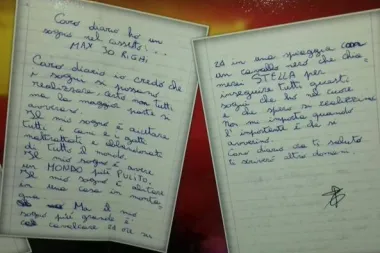 Caro diario ho un
sogno nel cassetto...
MAX 30 RIGHI
Caro diario io credo che
i sogni si possano
realizzare, certo non tutti
ma la maggior parte si
avverano.
Il mio sogno è aiutare
tutti i cani e i gatti
maltrattati e abbandonati
di tutto il mondo.
Il mio sogno è avere
un MONDO più PULITO.
Il mio sogno è abitare
in una casa in monta
gna. Ma il mio
sogno più grande è
cavalcare su
in una spiaggia con
un cavallo nero che chia
merò STELLA per
inseguire tutti questi
sogni che ho nel cuore
e che spero si realizzino
non mi importa quando
l'importante è che si
avverino.
Caro diario ora ti saluto
ti scriverò altro domani.